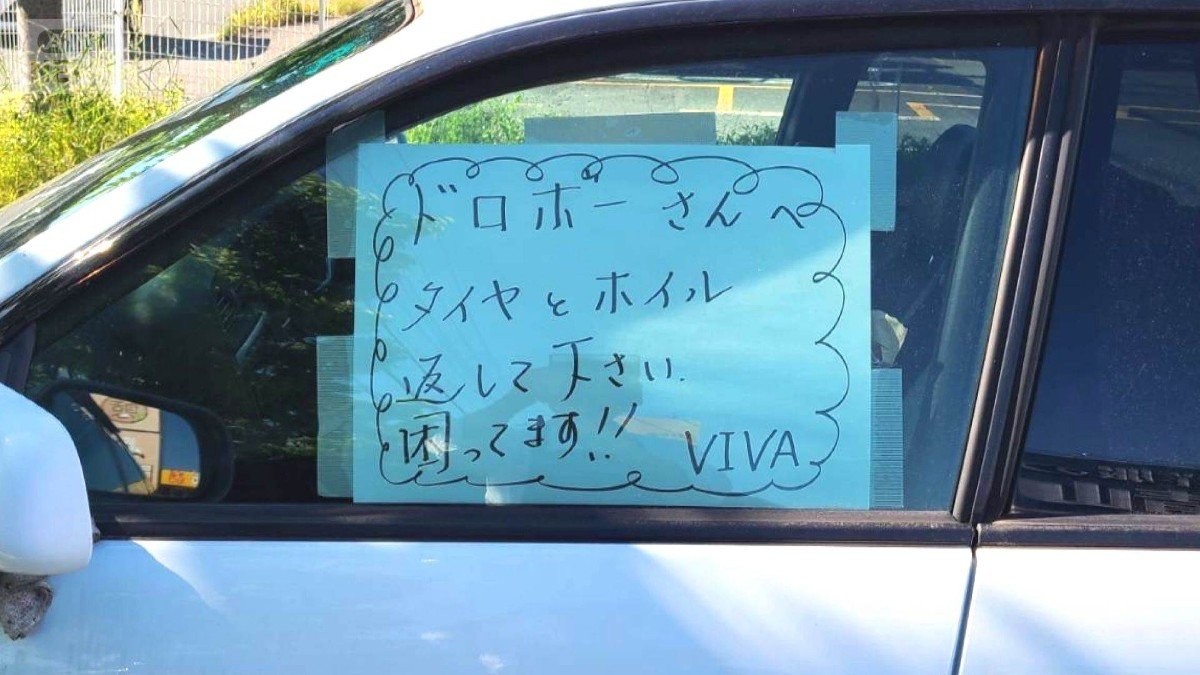 ドロボーさんへ
タイヤとホイル
返して下さい.
困ってます!!
VIVA